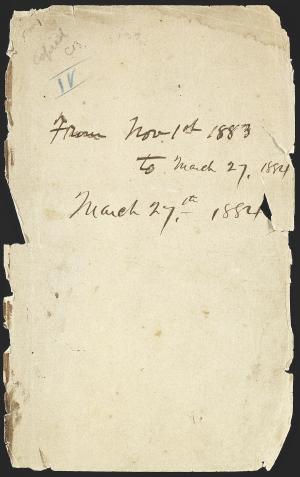 copied
CB.
IV
From Nov. 1st 1883
to March 27, 1884
March 27.th 1884